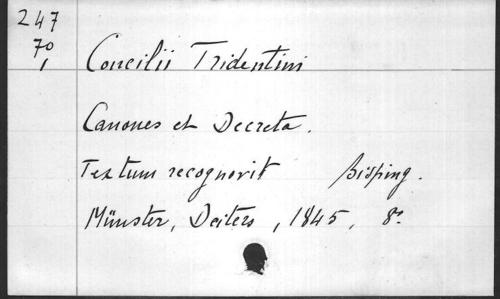 247
70,
Concilii Tridentini
Canones et Decreta.
Textum recognovit Bisping.
Münster, Deiters, 1845, 8°.